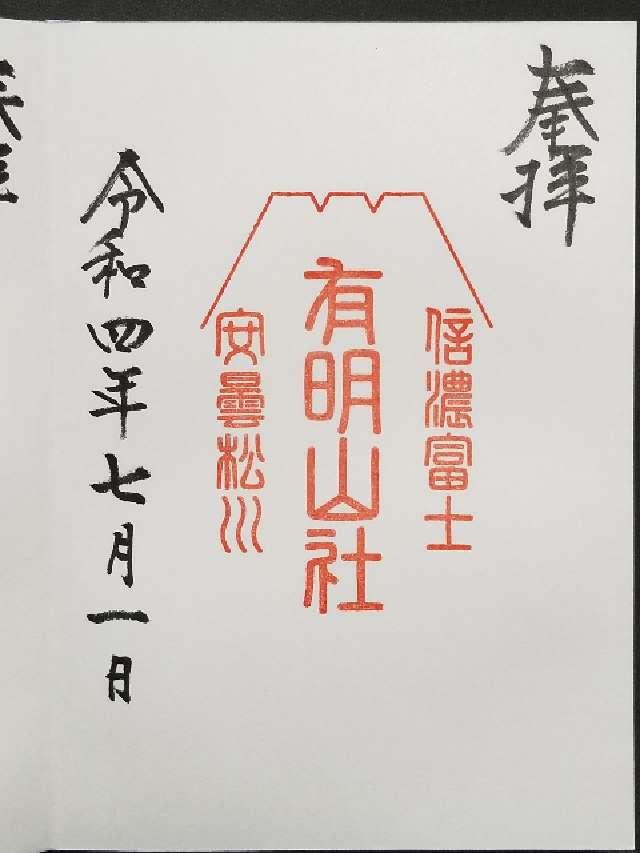 奉拝
信濃富士
有明山社
安曇松川
令和四年七月一日